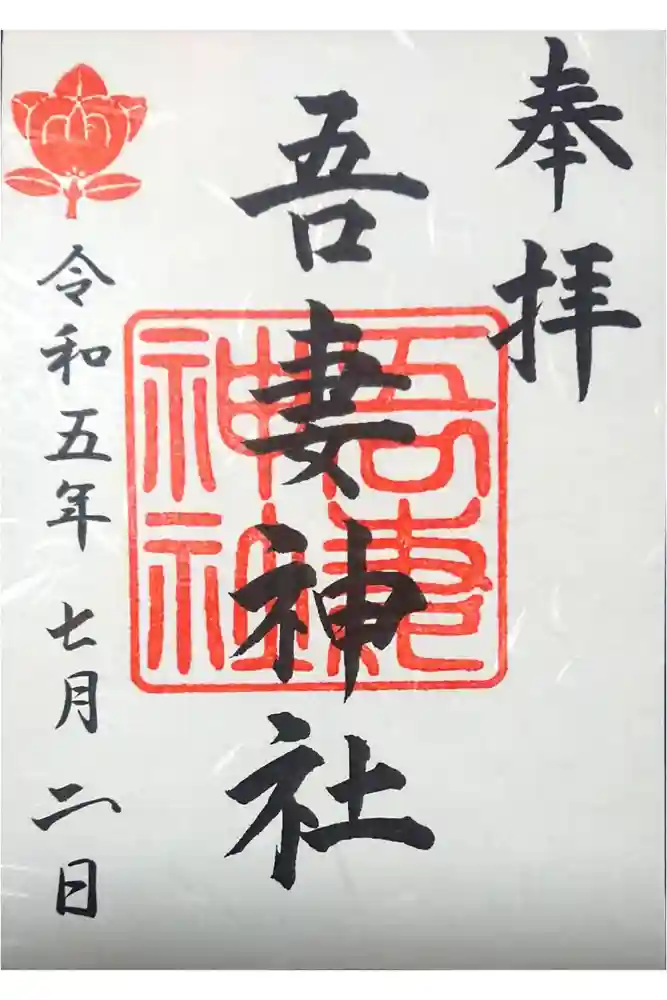 奉拝
吾妻神社
吾妻
神社
令和五年 七月二日